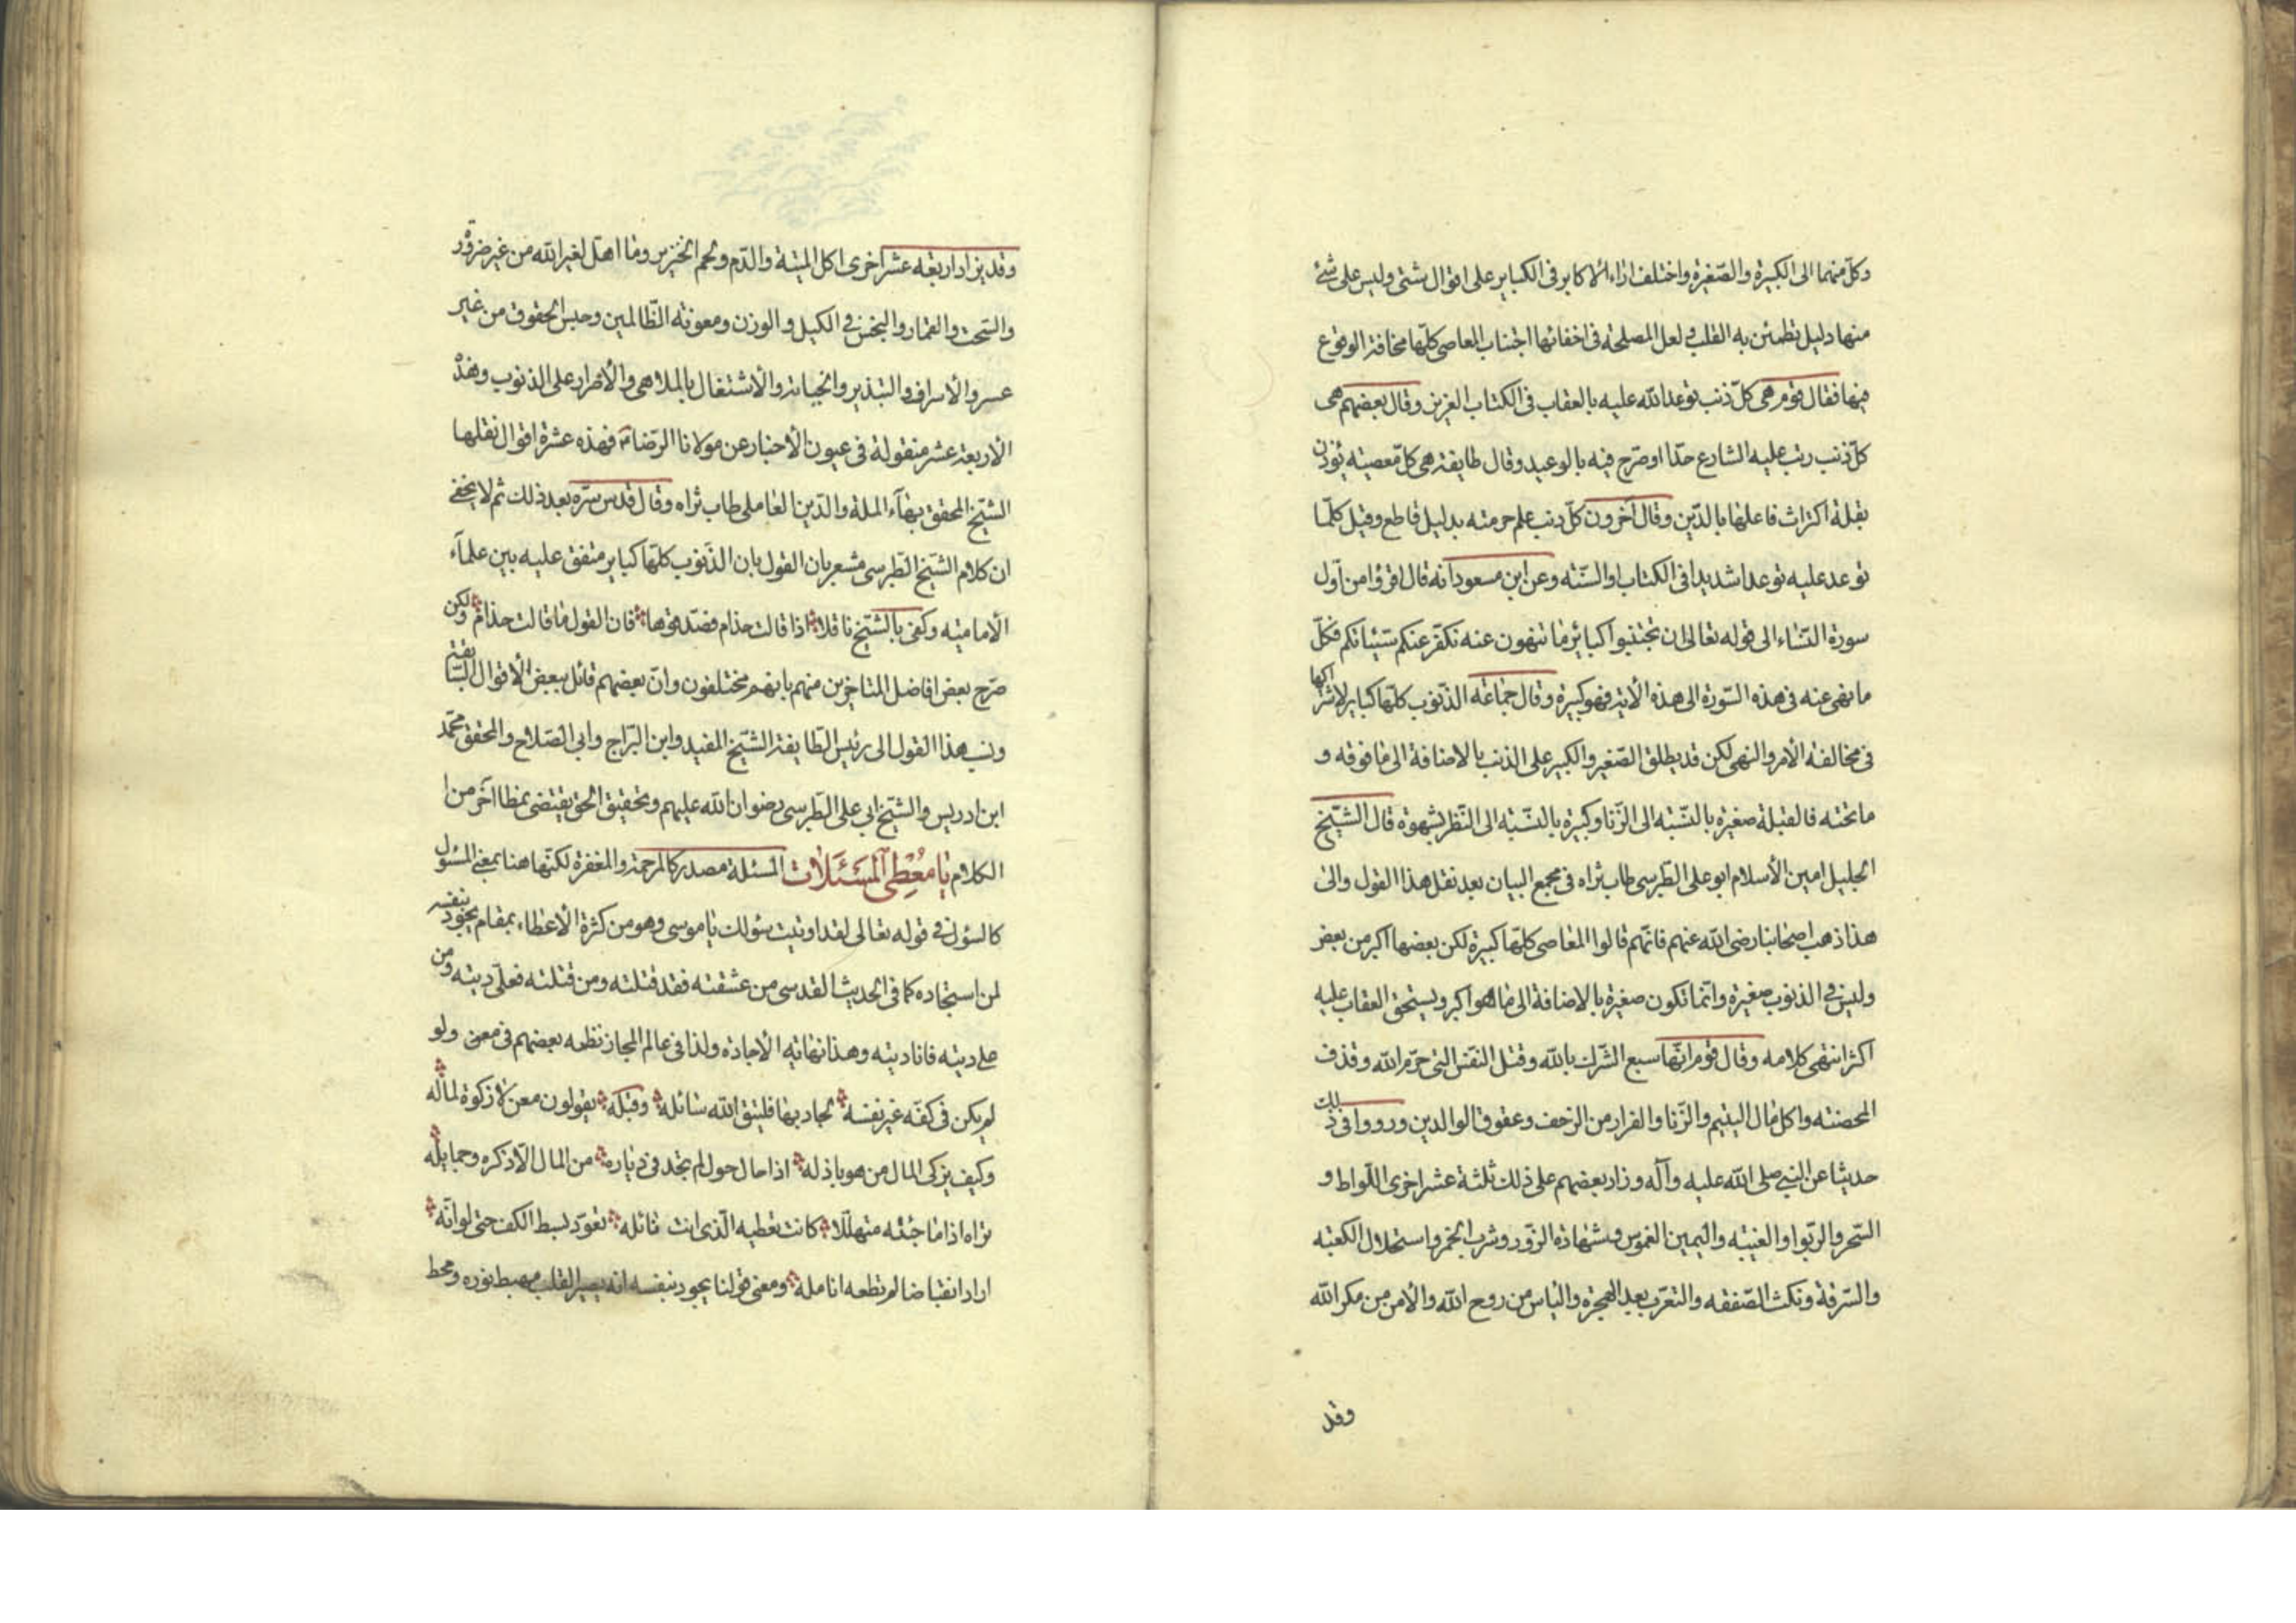 وكل منهما الى الكبيرة والصغيرة واختلف اراء الاكابر فى الكباير على اقوال شتى وليس على شئ
منها دليل تطمئن به القلب ولعل المصلحة فى اخفائها اجتناب المعاصى كلها مخافة الوقوع
فيها فقال قوم هى كل ذنب توعد الله عليه بالعقاب فى الكتاب العزيز وقال بعضهم هى
كل ذنب رتب عليه الشارع حدا او صرح فيه بالوعيد وقال طايفة هى كل معصية تؤذن
بقلة اكتراث فاعلها بالدين وقال آخرون كل ذنب علم حرمته بدليل قاطع وقيل كلما
توعد عليه توعدا شديدا فى الكتاب او السنة وعن ابن مسعود انه قال اقرؤا من اول
سورة النساء الى قوله تعالى ان تجتنبوا كبائر ما تنهون عنه نكفر عنكم سيئاتكم فكل
ما نهى عنه فى هذه السورة الى هذه الاية فهو كبيرة وقال جماعة الذنوب كلها كباير لاشتراكها
فى مخالفة الامر والنهى لكن قد يطلق الصغير والكبير على الذنب بالاضافة الى ما فوقه و
ما تحته فالقبلة صغيرة بالنسبة الى الزنا وكبيرة بالنسبة الى النظر بشهوة قال الشيخ
الجليل امين الأسلام ابو على الطبرسى طاب ثراه فى مجمع البيان بعد نقل هذا القول والى
هذا ذهب اصحابنا رضى الله عنهم فانهم قالوا المعاصى كلها كبيرة لكن بعضها اكبر من بعض
وليس فى الذنوب صغيرة وانما تكون صغيرة بالاضافة الى ما هو اكبر ويستحق العقاب عليه
اكثر انتهى كلامه وقال قوم انها سبع الشرك بالله وقتل النفس التى حرم الله وقذف
المحصنه واكل مال اليتيم والزنا والفرار من الزحف وعقوق الوالدين ورووا فى ذلك
حديثا عن النبى صلى الله عليه وآله وزاد بعضهم على ذلك ثلثة عشر اخرى اللواط و
السحر والربوا والغيبه واليمين الغموس وشهادة الزور وشرب الخمر واستحلال الكعبه
والسرقة ونكث الصفقه والتعرب بعد الهجرة والياس من روح الله والأمن من مكر الله
وقد
وقد يزاد اربعه عشر اخرى اكل الميتة والدم ولحم الخنزير وما اهل لغير الله من غير ضرورة
والسحت والقمار والبخس فى الكيل والوزن ومعونة الظالمين وحبس الحقوق من غير
عسر والأسراف والتبذير والخيانة والأشتغال بالملاهى والأصرار على الذنوب وهذه
الأربعة عشر منقولة فى عيون الأخبار عن مولانا الرضا ع فهذه عشرة اقوال نقلها
الشيخ المحقق بهآء الملة والدين العاملى طاب ثراه وقال قدس سره بعد ذلك ثم لا يخفى
ان كلام الشيخ الطبرسى مشعر بان القول بان الذنوب كلها كباير متفق عليه بين علمآء
الأماميه وكفى بالشيخ ناقلا اذا قالت حذام فصدقوها فان القول ما قالت حذام ولكن
صرح بعض افاضل المتاخرين منهم بانهم مختلفون وان بعضهم قائل ببعض الأقوال السابقة
ونسب هذا القول الى رئيس الطايفة الشيخ المفيد وابن البراج وابى الصلاح والمحقق محمد
ابن ادريس والشيخ ابى على الطبرسى رضوان الله عليهم وتحقيق الحق يقتضى نمطا آخر من
الكلام يا معطى المسئلات المسئلة مصدر كالمرحمة والمغفرة لكنها هنا بمعنى المسئول
كالسؤل فى قوله تعالى لقد اوتيت سؤلك يا موسى وهو من كثرة الأعطاء بمقام يجود بنفسه
لمن استجاده كما فى الحديث القدسى من عشقته فقد قتلته ومن قتلته فعلى ديته ومن
على ديته فانا ديته وهذا نهاية الأجادة ولذا فى عالم المجاز نظمه بعضهم فى معن ولو
لم يكن فى كفه غير نفسه لجاد بها فليتق الله سائله وقبله يقولون معن لا زكوة لماله
وكيف يزكى المال من هو باذله اذا حال حول لم تجد فى دياره من المال الا ذكره وجمايله
تراه اذا ما جئته متهللا كانك تعطيه الذى انت نائله تعود بسط الكف حتى لو انه
اراد انقباضا لم تطعه انامله ومعنى قولنا يجود بنفسه انه يصير القلب مهبط نوره ومحط